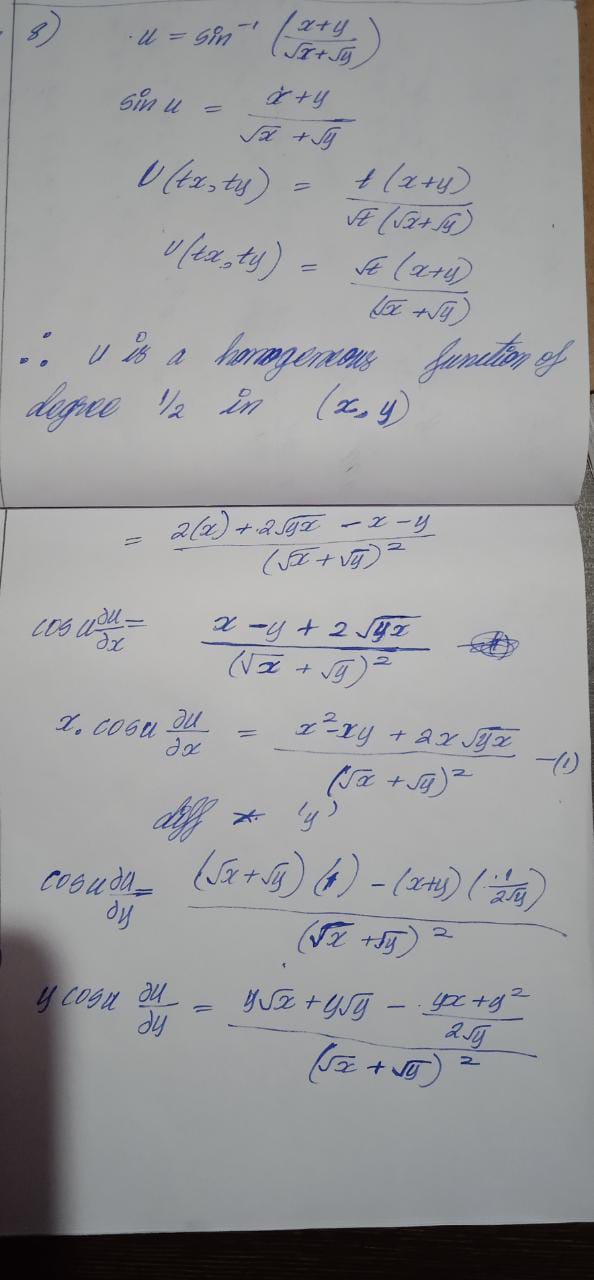 8) u = sin⁻¹ (x+y / √x+√y)
sin u = x+y / √x+√y
U(tx,ty) = t(x+y) / √t(√x+√y)
U(tx,ty) = √t(x+y) / (√x+√y)
∴ u is a homogeneous function of
degree 1/2 in (x, y)
= 2(x)+2√yx - x - y / (√x+√y)²
cosu ∂u/∂x = x - y + 2√yx / (√x + √y)²
x. cosu ∂u/∂x = x² - xy + 2x√yx / (√x + √y)² -(1)
diff 'y'
cosu ∂u/∂y = (√x+√y)(1) - (x+y)(1/2√y) / (√x +√y)²
y cosu ∂u/∂y = y√x + y√y - yx+y²/2√y / (√x + √y)²